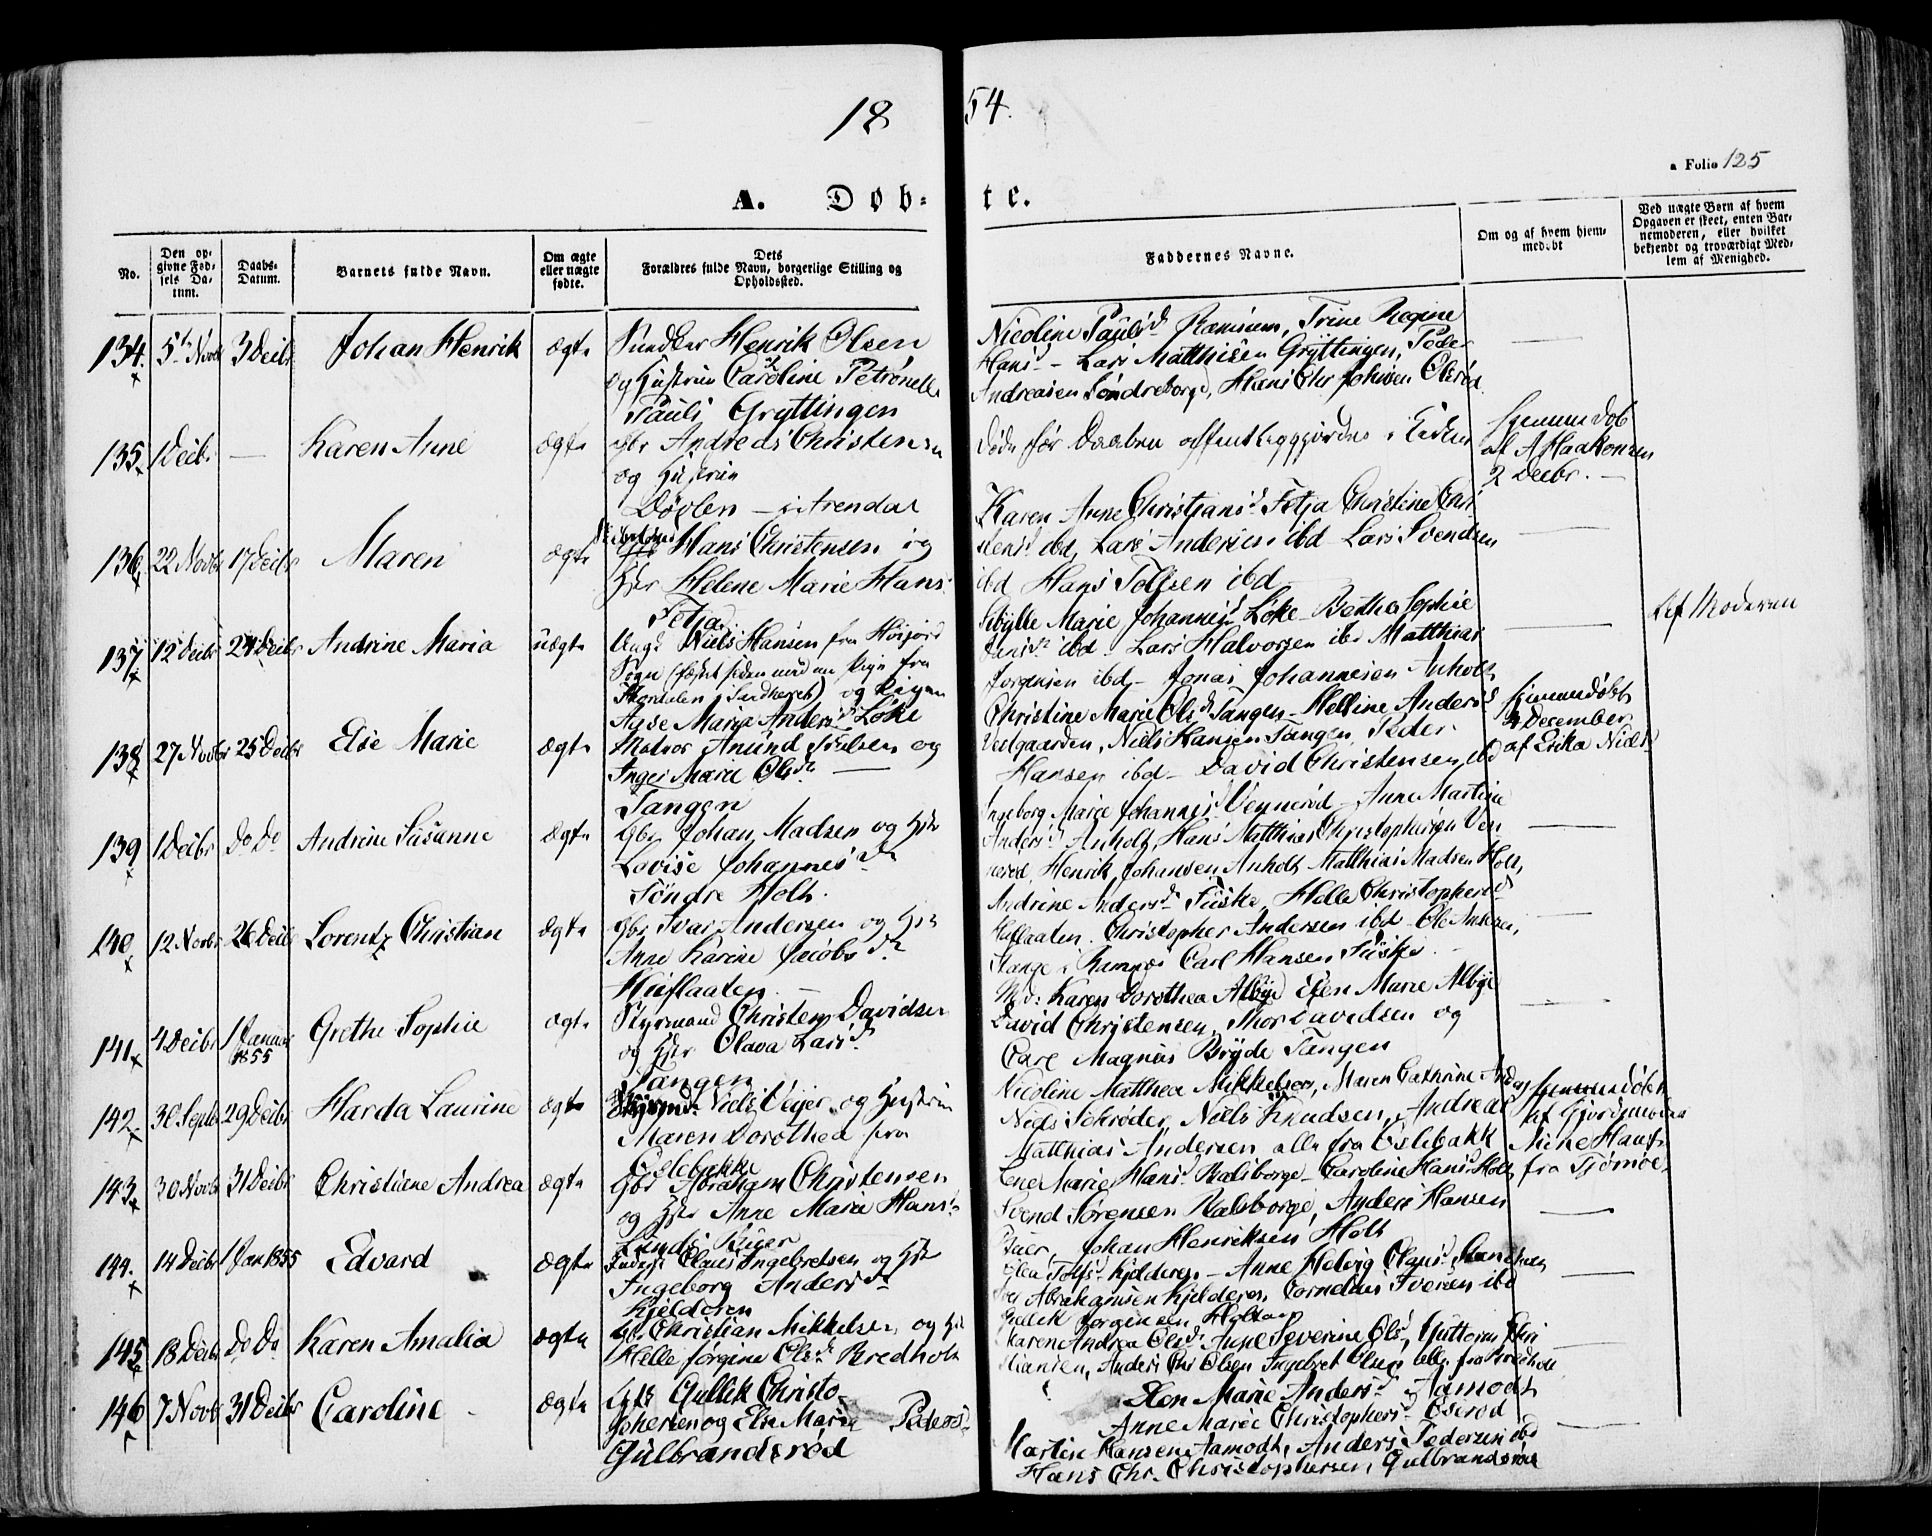 18 54.
a Folio 125
A. Døb- te.
No.
Den opgivne Fødsels Datum.
Daabs-Datum.
Barnets fulde Navn.
Om ægte eller uægte fødte.
Dets Forældres fulde Navn, borgerlige Stilling og Opholdssted.
Faddernes Navne.
Om og af hvem hjemmedøbt
Ved uægte Børn af hvem Opgaven er skeet, enten Barnemoderen, eller hvilket bekjendt og troværdigt Medlem af Menighed.
134. 5te Novbr 3 Decbr Johan Henrik ægte Henrik Olsen
og Hustrue Caroline Petronelle
Pauls Gryttingen
Nicoline Paulsd. Ramsum, Trine Regine
Hansd. - Lars Matthisen Gryttingen, Peder
Andreasen Søndreborge, Hans Chr Johnsen
135. 1 Decbr. — Karen Anne ægte Gbr Andreas Christensen
og Hustrue
Døvlen
Døde før Daaben offentliggjordes i Kirken
Hjemmedøb
af A Haakonsen
2 Decbr. —
136. 22 Novbr 17 Decbr Maren ægte Hans Christensen og
Hstr Helene Marie Hans
Fetja
Karen Anne Christiansd. Fetja Christine Chri
stensd. ibd, Lars Andersen ibd Lars Svendsen
ibd Hans Tolfsen ibd
137. 12 Decbr 24 Decbr Andrine Maria uægte Ungk Niels Hansen fra
Sogn (fæstet siden med en Pige fra
i Sandherred) og Pigen
Anne Marie Andersd. Løke
Sibylle Marie Johannesd. Løke Berthe Sophie
ibd - Lars Halvorsen ibd Matthias
Jørgensen ibd - Jonas Johannesen Anholt
Af Moderen
138. 27 Novbr 25 Decbr Else Marie ægte Matros Amund og
Inger Marie Olsd. —
Tangen
Christine Marie Olsd. Tangen - Helline Andersd
Vestgaarden, Niels Hansen Tangen, Peder
Hansen ibd - David Christensen ibd
Hjemmedøbt
4 December
af Erika Nielsd
139. 1 Decbr Do Do Andrine Susanne ægte Gbr Johan Madsen og Hstr
Lovise Johannesd.
Søndre Holt.
Ingeborg Marie Johannesd. Vennerød - Anne Martine
Andersd. Anholt, Hans Matthias Christophersen Ven
nerød, Henrik Johansen Anholt Matthias Madsen Holt,
140. 12 Novbr 26 Decbr Lorentz Christian ægte Gbr Ivar Andersen og Hstr
Anne Karine Jacobsd.
Huflaaten. —
Andrine Andersd. Füske, Helle Christophersd
Huflaaten. Christopher Andersen ibd - Ole Andersen,
Stange i Ramnæs Carl Hansen Füske
141. 4 Decbr 1 Januar 1855 Grethe Sophie ægte Styrmand Christen Davidsen
og Hstr Olava Larsd.
Tangen
Md: Karen Dorothea Albye Elen Marie Albye
David Christensen, Thor Davidsen og
Carl Magnus Bryde Tangen
142. 30 Septbr 29 Decbr Harda Laurine ægte Niels Veyer og Hustrue
Maren Dorothea fra
Østebakke
Nicoline Matthea Mikkelsen, Maren Cathrine And
Niels Schrøder, Niels Knudsen, Andreas
Matthias Andersen alle fra Østebakk
Hjemmedøbt
af Gjordemoder
Mine Hans
fra Tjømøe.
143. 30 Novbr 31 Decbr Christiane Andrea ægte Gbr Abraham Christensen
og Hstr Anne Marie Hansd.
Lunds Buer
Lene Marie Hansd. Ralsborge - Caroline Hansd. Holt
Svend Sørensen Ralsborge, Anders Hansen
Buer, Johan Henriksen Holt
144. 14 Decbr 1 Jan 1855 Edvard ægte Claus Ingebretsen og Hstr
Ingeborg Andersd.
Kjelderen
Olea Tolfsd. Kjelderen - Anne Helvig Clausd.
Abrahamsen Kjelderen, Cornelius Iversen ibd
Gullik Jørgensen
145. 18 Decbr Do Do Karen Amalia ægte Gbr Christian Mikkelsen og Hstr
Helle Jørgine Olsd. Bredholt
Maren Andrea Olsd. Anne Severine Olsd., Guttorm Chri
stiansen, Anders Chr Olsen Ingebret Olsen alle fra Bredholt
146 7 Novbr 31 Decbr Caroline ægte Gullik Christo-
phersen og Else Marie Pedersd.
Gulbrandsrød
Elen Marie Andersd. Aamodt
Anne Marie Christophersd. Oserød
Martin Hansen Aamodt, Anders Pedersen ibd
Hans Chr. Christophersen, Gulbrandsrød